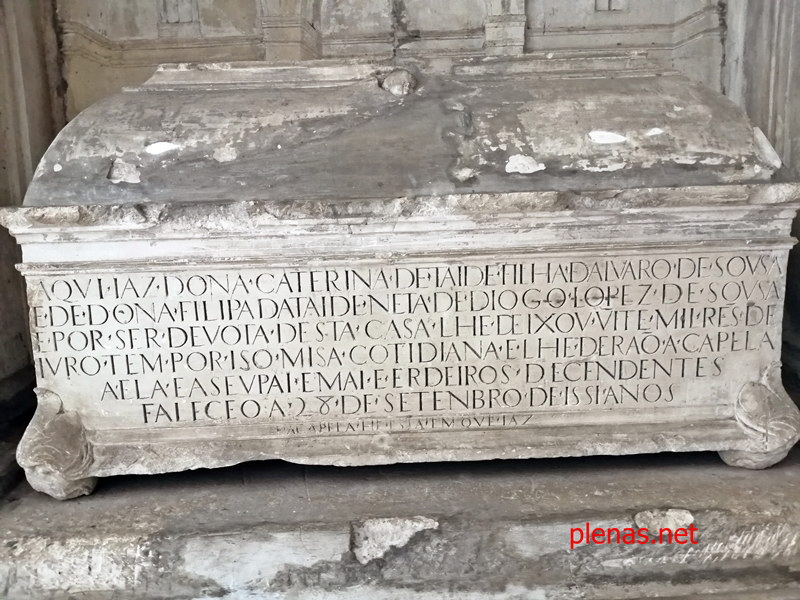 AQVI·IAZ·DONA·CATERINA·DE·TAIDE·FILHA·DALVARO·DE·SOVSA
E·DE·DONA·FILIPA·DATAIDE·NETA·DE·DIOGO·LOPEZ·DE·SOVSA
E·POR·SER·DEVOTA·DESTA·CASA·LHE·DEIXOV·VITE·MIL·RES·DE
IVRO·TEM·POR·ISO·MISA·COTIDIANA·E·LHE·DERAO·A·CAPELA
A·ELA·E·A·SEV·PAI·E·MAI·E·ERDEIROS·DECENDENTES
FALECEO·A·28·DE·SETENBRO·DE·ISSI·ANOS
CAPELA·ESTA·EM·QVE·IAZ
plenas.net